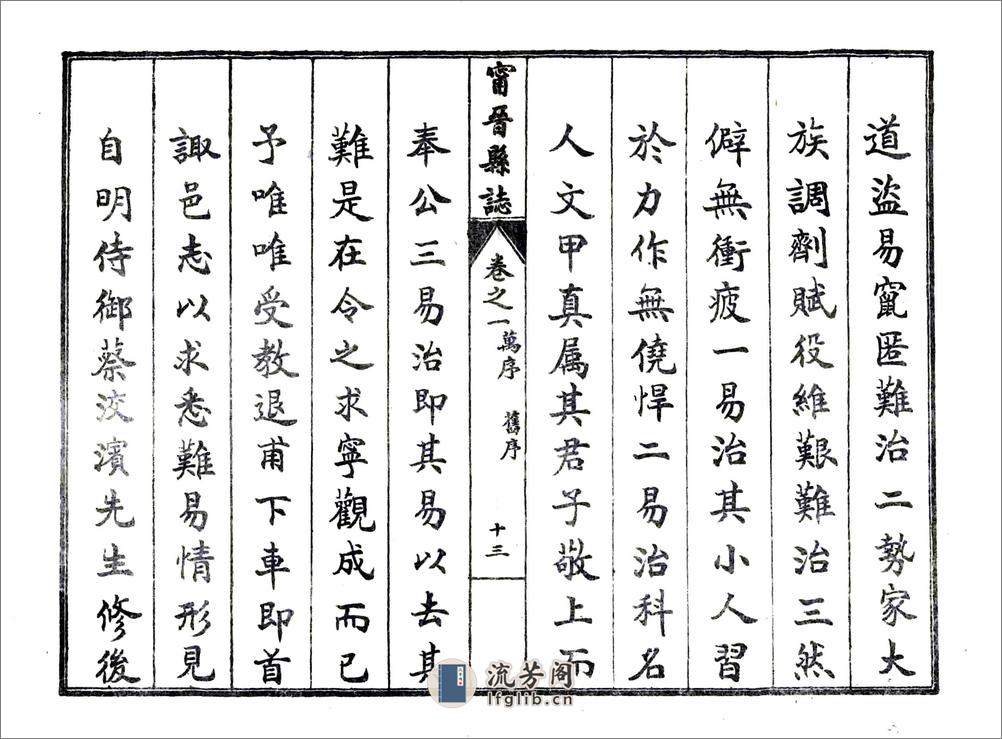 道盜易竄匿難治二勢家大
族調劑賦役維艱難治三然
僻無衝疲一易治其小人習
於力作無僥悍二易治科名
人文甲真属其君子敬上而
甯晉縣誌 卷之一 萬序 舊序 十三
奉公三易治即其易以去其
難是在令之求寧觀成而已
予唯唯受教退甫下車即首
諏邑志以求悉難易情形見
自明侍御蔡洨濱先生修後
流芳阁
lfglib.cn